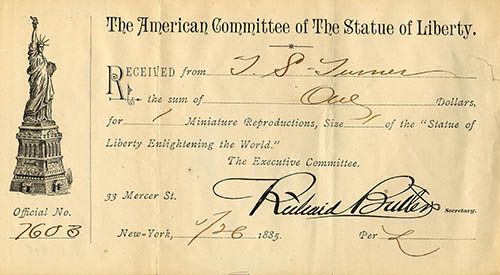 The American Committee of The Statue of Liberty.
RECEIVED from T. S. Turner
the sum of One Dollars,
for 1 Miniature Reproductions, Size 1 of the "Statue of
Liberty Enlightening the World."
The Executive Committee.
33 Mercer St. Richard Butler Secretary.
Official No.
7603
New-York, 1885. Per L